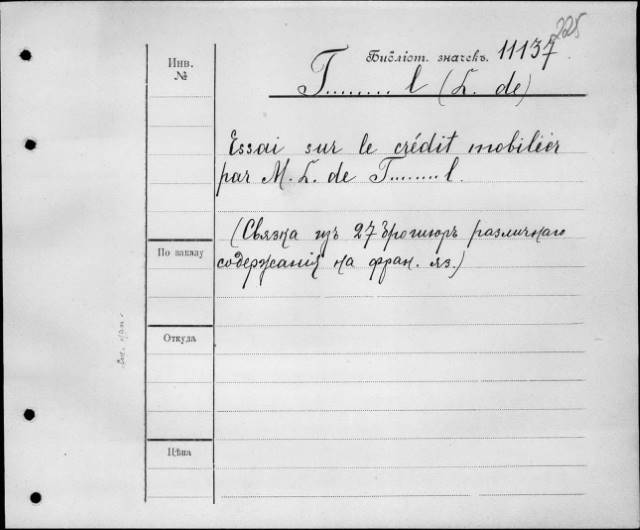 225
Инв.
№
Библіот. значекъ. 11137
T........l (L. de)
Essai sur le crédit mobilier
par M. L. de T........l.
(Связка изъ 27 брошюръ различнаго
содержанія на фран. яз.)
По заказу
Откуда
Цѣна